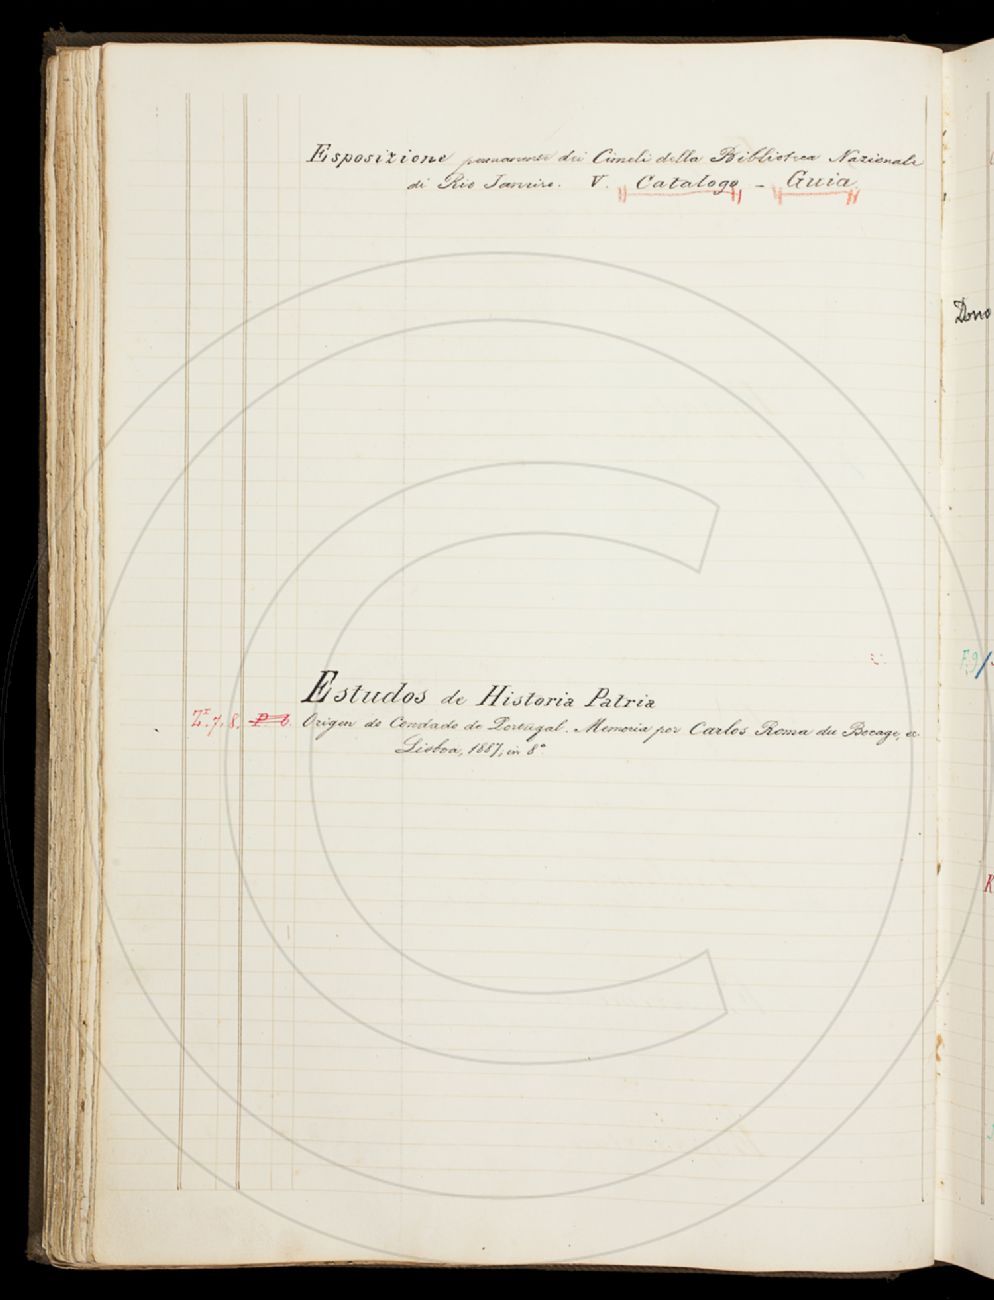 Esposizione permanente dei Cimeli della Biblioteca Nazionale
di Rio Janeiro. V. Catalogo - Guia
Dono
F.9/
Estudos de Historia Patria
Z.I.7.8. P 6. Origen do Condado de Portugal. Memoria por Carlos Roma du Bocage, &
Lisboa, 1887, in 8°
K